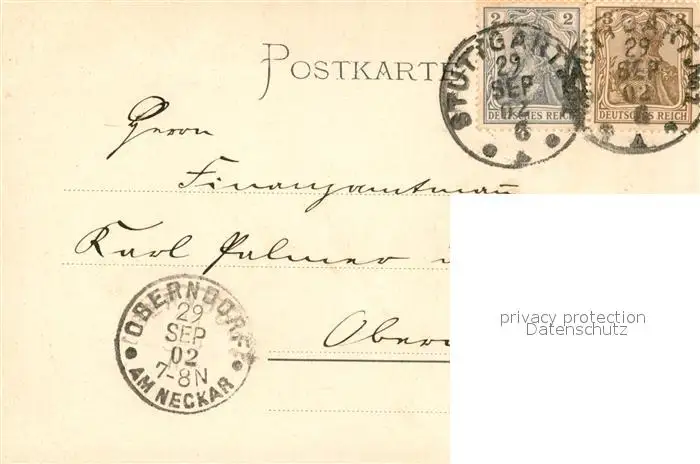 POSTKARTE
2 3
DEUTSCHES REICH DEUTSCHES REICH
STUTTGART
29
SEP
02
6
A
29
SEP
02
6
A
Herrn
Finanzamtmann
Karl Palmer
Obern
OBERNDORF
29
SEP
02
7-8N
AM NECKAR
privacy protection
Datenschutz